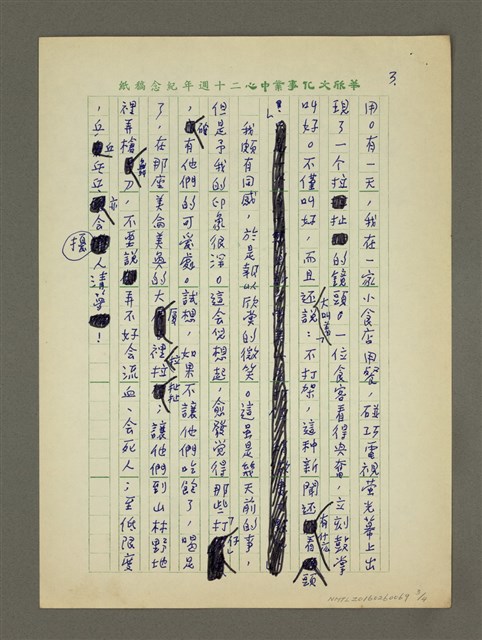 3.
華欣文化事業中心二十週年紀念稿紙
用。有一天,我在一家小食店用餐,碰巧電視螢光幕上出
現了一个拉扯的鏡頭。一位食客看得興奮,立刻鼓掌
叫好。不僅叫好,而且还大叫着說:不打架,這种新聞还有什么看頭
!」
我頗有同感,於是報以欣赏的微笑。這虽是幾天前的事,
但是予我的印象很深。這会兒想起,愈發覺得那些「打仔」
,確有他們的可爱處。試想,如果不讓他們吃飽了,喝足
了,在那座美侖美奐的大厦裡拉拉扯扯;讓他們到山林野地
裡弄槍舞刀,不要說弄不好会流血、会死人;至低限度
,乒乒乓乓亦会擾人清夢!
3/4